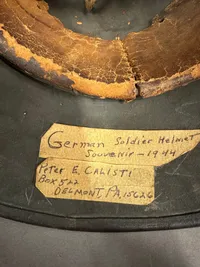 German Soldier Helmet
Souvenir - 1944
Peter E. CALISTI
Box 522
DELMONT, PA, 15626